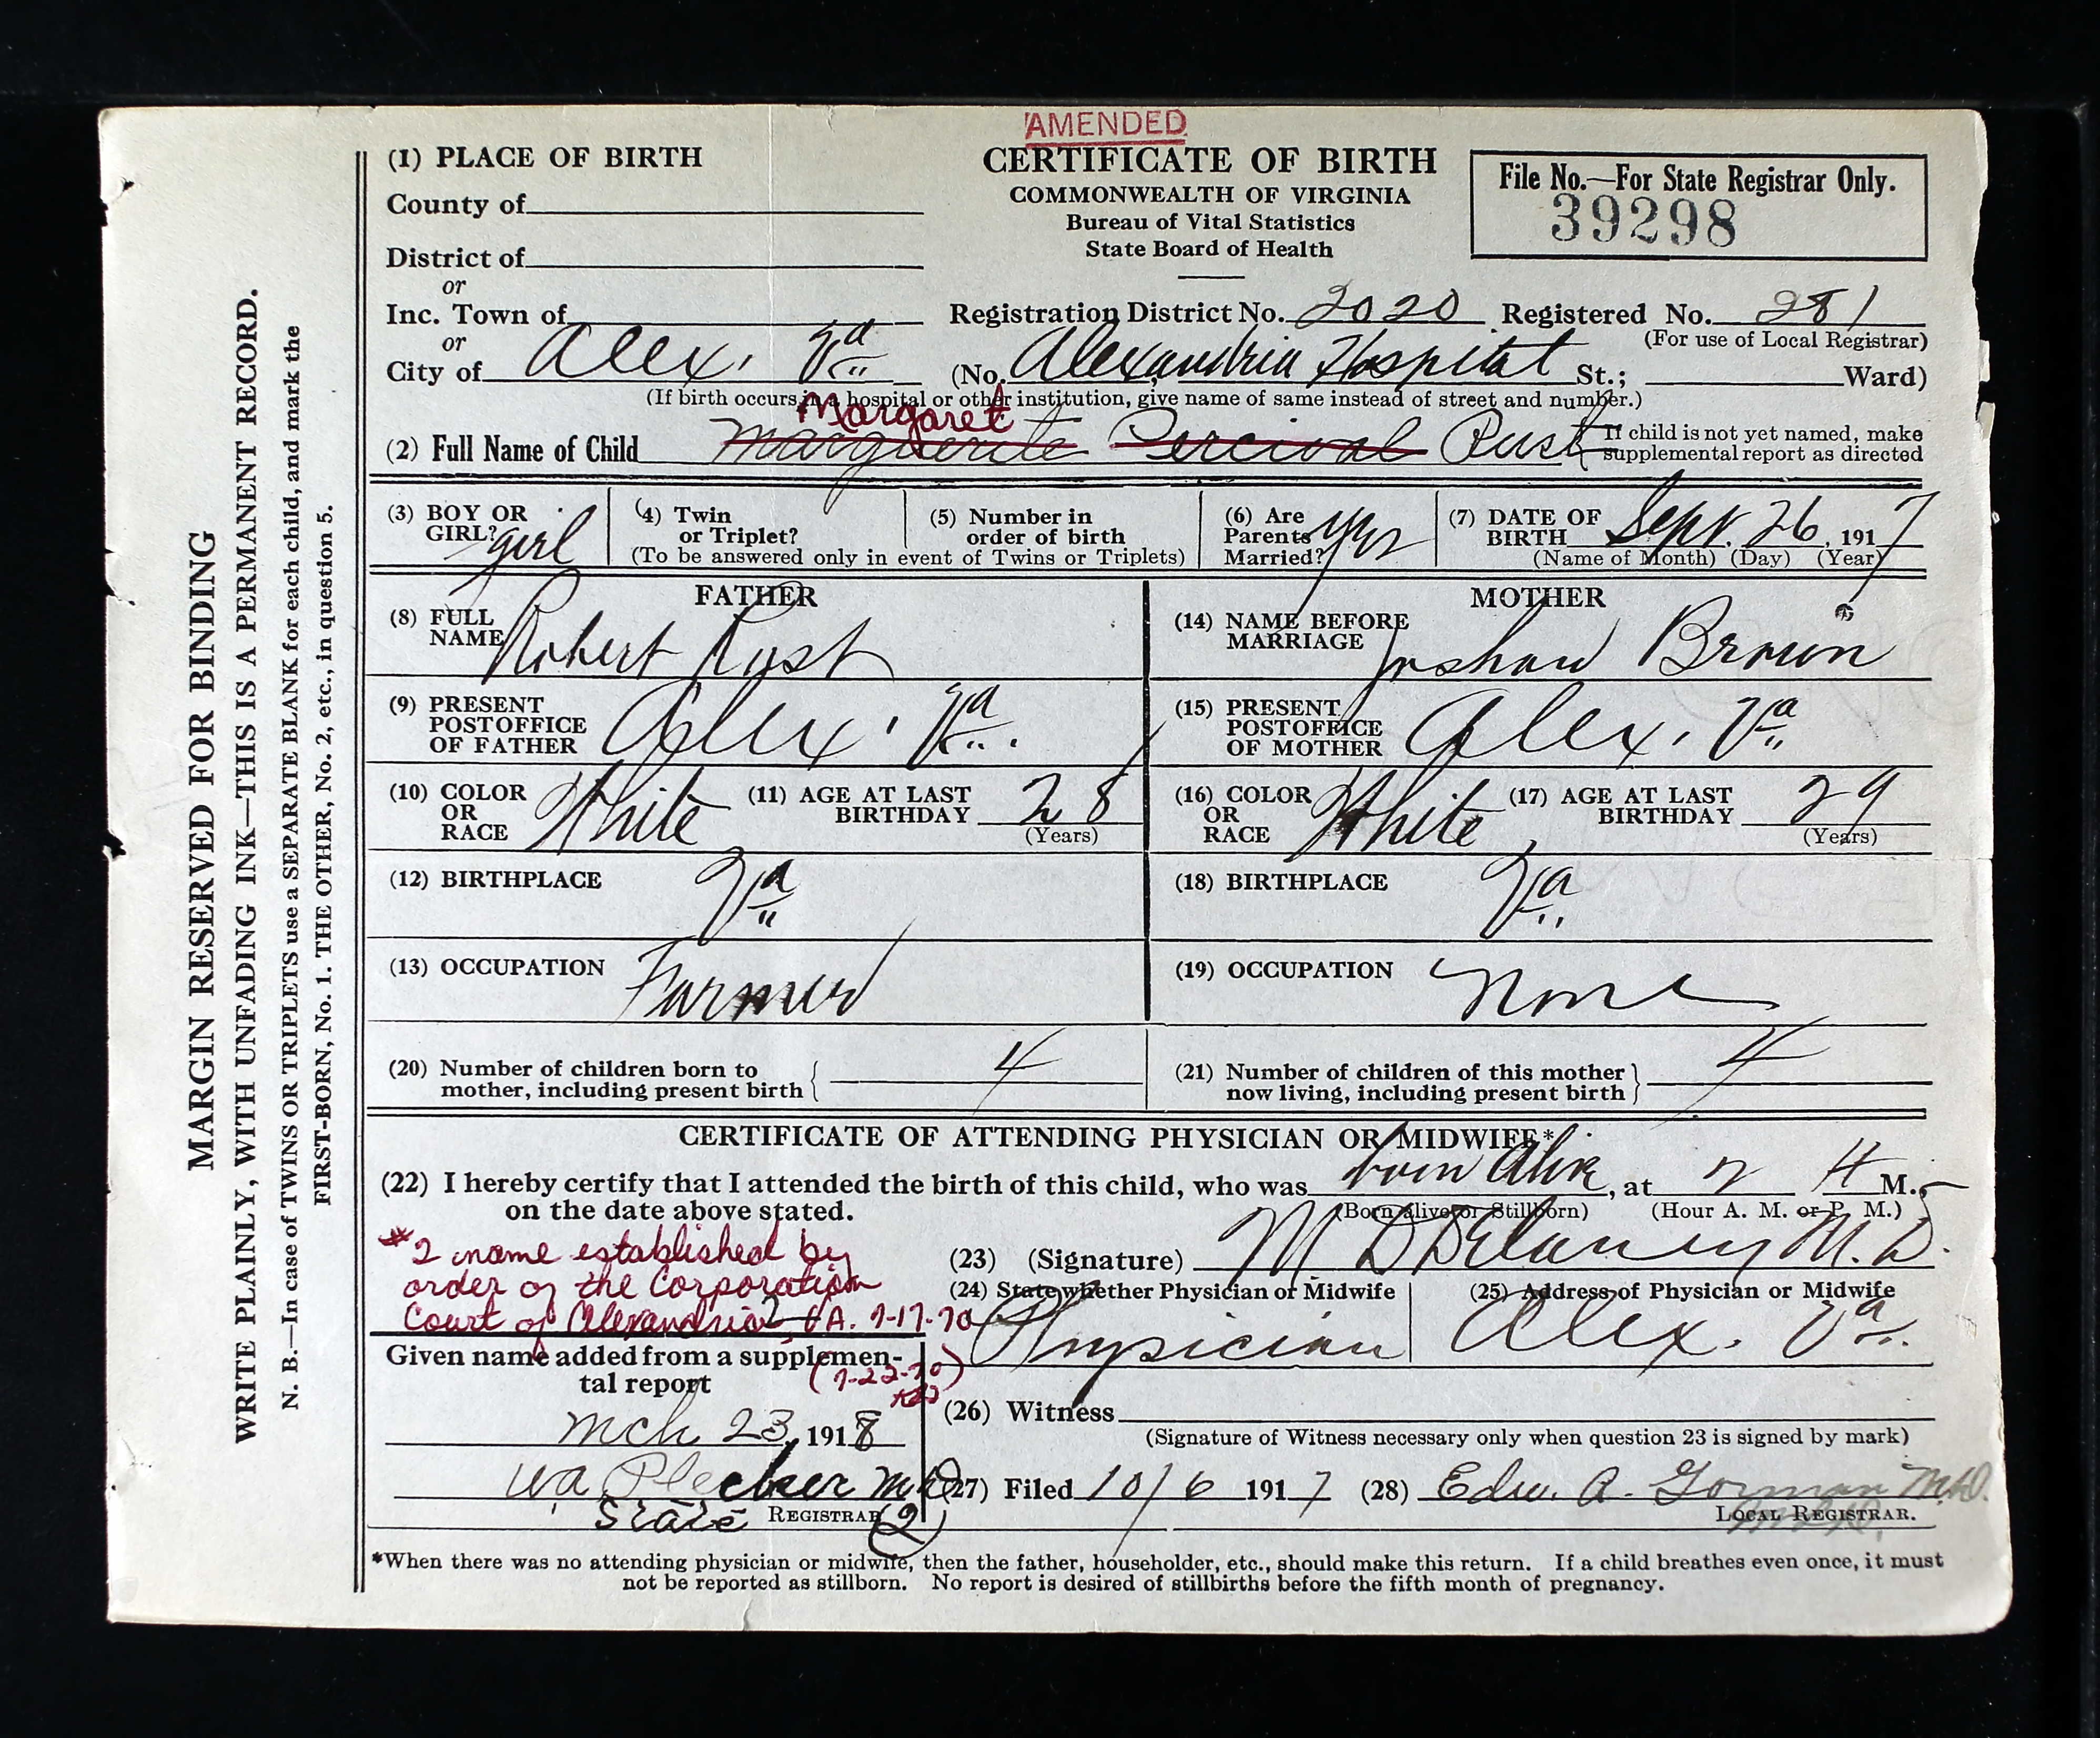 AMENDED
(1) PLACE OF BIRTH
CERTIFICATE OF BIRTH
COMMONWEALTH OF VIRGINIA
Bureau of Vital Statistics
State Board of Health
File No.—For State Registrar Only.
39298
County of
District of
or
Inc. Town of
Registration District No. 2020 Registered No. 281
(For use of Local Registrar)
or
City of Alex. Va (No. Alexandria Hospital St.; Ward)
(If birth occurs in a hospital or other institution, give name of same instead of street and number.)
Margaret
(2) Full Name of Child Marguerite Percival Rust
If child is not yet named, make
supplemental report as directed
(3) BOY OR GIRL? girl
(4) Twin or Triplet?
(5) Number in order of birth
(To be answered only in event of Twins or Triplets)
(6) Are Parents Married? yes
(7) DATE OF BIRTH Sept. 26, 1917
(Name of Month) (Day) (Year)
FATHER
(8) FULL NAME Robert Rust
(9) PRESENT POSTOFFICE OF FATHER Alex. Va.
(10) COLOR OR RACE White
(11) AGE AT LAST BIRTHDAY 28
(Years)
(12) BIRTHPLACE Va
(13) OCCUPATION Farmer
MOTHER
(14) NAME BEFORE MARRIAGE Brown
(15) PRESENT POSTOFFICE OF MOTHER Alex. Va
(16) COLOR OR RACE White
(17) AGE AT LAST BIRTHDAY 29
(Years)
(18) BIRTHPLACE Va
(19) OCCUPATION None
(20) Number of children born to
mother, including present birth 4
(21) Number of children of this mother
now living, including present birth 4
CERTIFICATE OF ATTENDING PHYSICIAN OR MIDWIFE*
(22) I hereby certify that I attended the birth of this child, who was born alive, at M.,
(Born alive or Stillborn) (Hour A. M. or P. M.)
on the date above stated.
#2 name established by
order of the Corporation
Court of Alexandria, VA.
(23) (Signature) M D Delaney M.D.
(24) State whether Physician or Midwife
Physician
(25) Address of Physician or Midwife
Alex. Va.
Given name added from a supplemen-
tal report
Mch 23, 1918
WA Plecker MD
State REGISTRAR (2)
(26) Witness
(Signature of Witness necessary only when question 23 is signed by mark)
(27) Filed 10/6 1917 (28) Edw. A. Gorman M.D.
LOCAL REGISTRAR.
*When there was no attending physician or midwife, then the father, householder, etc., should make this return. If a child breathes even once, it must
not be reported as stillborn. No report is desired of stillbirths before the fifth month of pregnancy.
MARGIN RESERVED FOR BINDING
WRITE PLAINLY, WITH UNFADING INK—THIS IS A PERMANENT RECORD.
N. B.—In case of TWINS OR TRIPLETS use a SEPARATE BLANK for each child, and mark the
FIRST-BORN, No. 1. THE OTHER, No. 2, etc., in question 5.